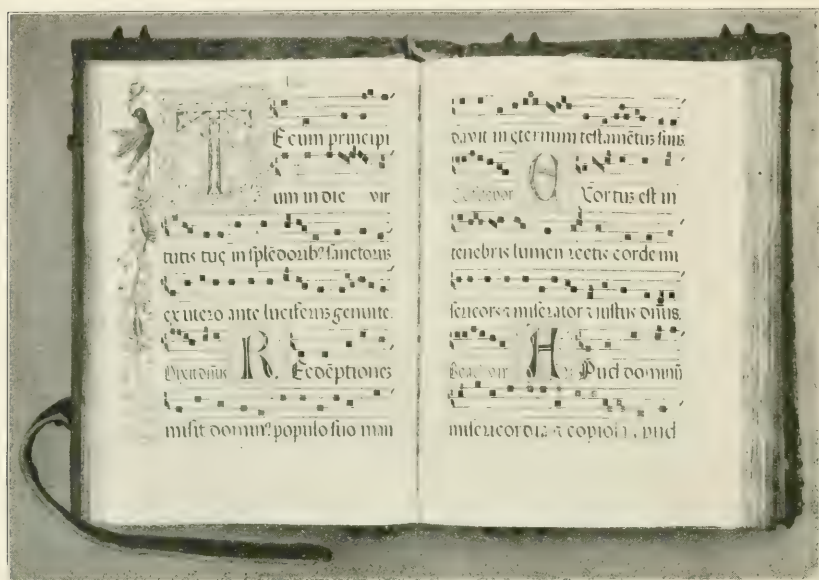 TEcum principi
um in die vir
tutis tuę in splēdorib⁹ sanctorus
ex utero ante luciferus genui te.
Dixit dn̄us REdēptiones
misit domin⁹ populo suo man
davit in ęternum testamētus suus
EXortus est in
tenebris lumen rectis corde mi
sericors ⁊ miserator ⁊ iustus dn̄us.
Beat⁹ vir APud dominū
misericordia ⁊ copiosa apud